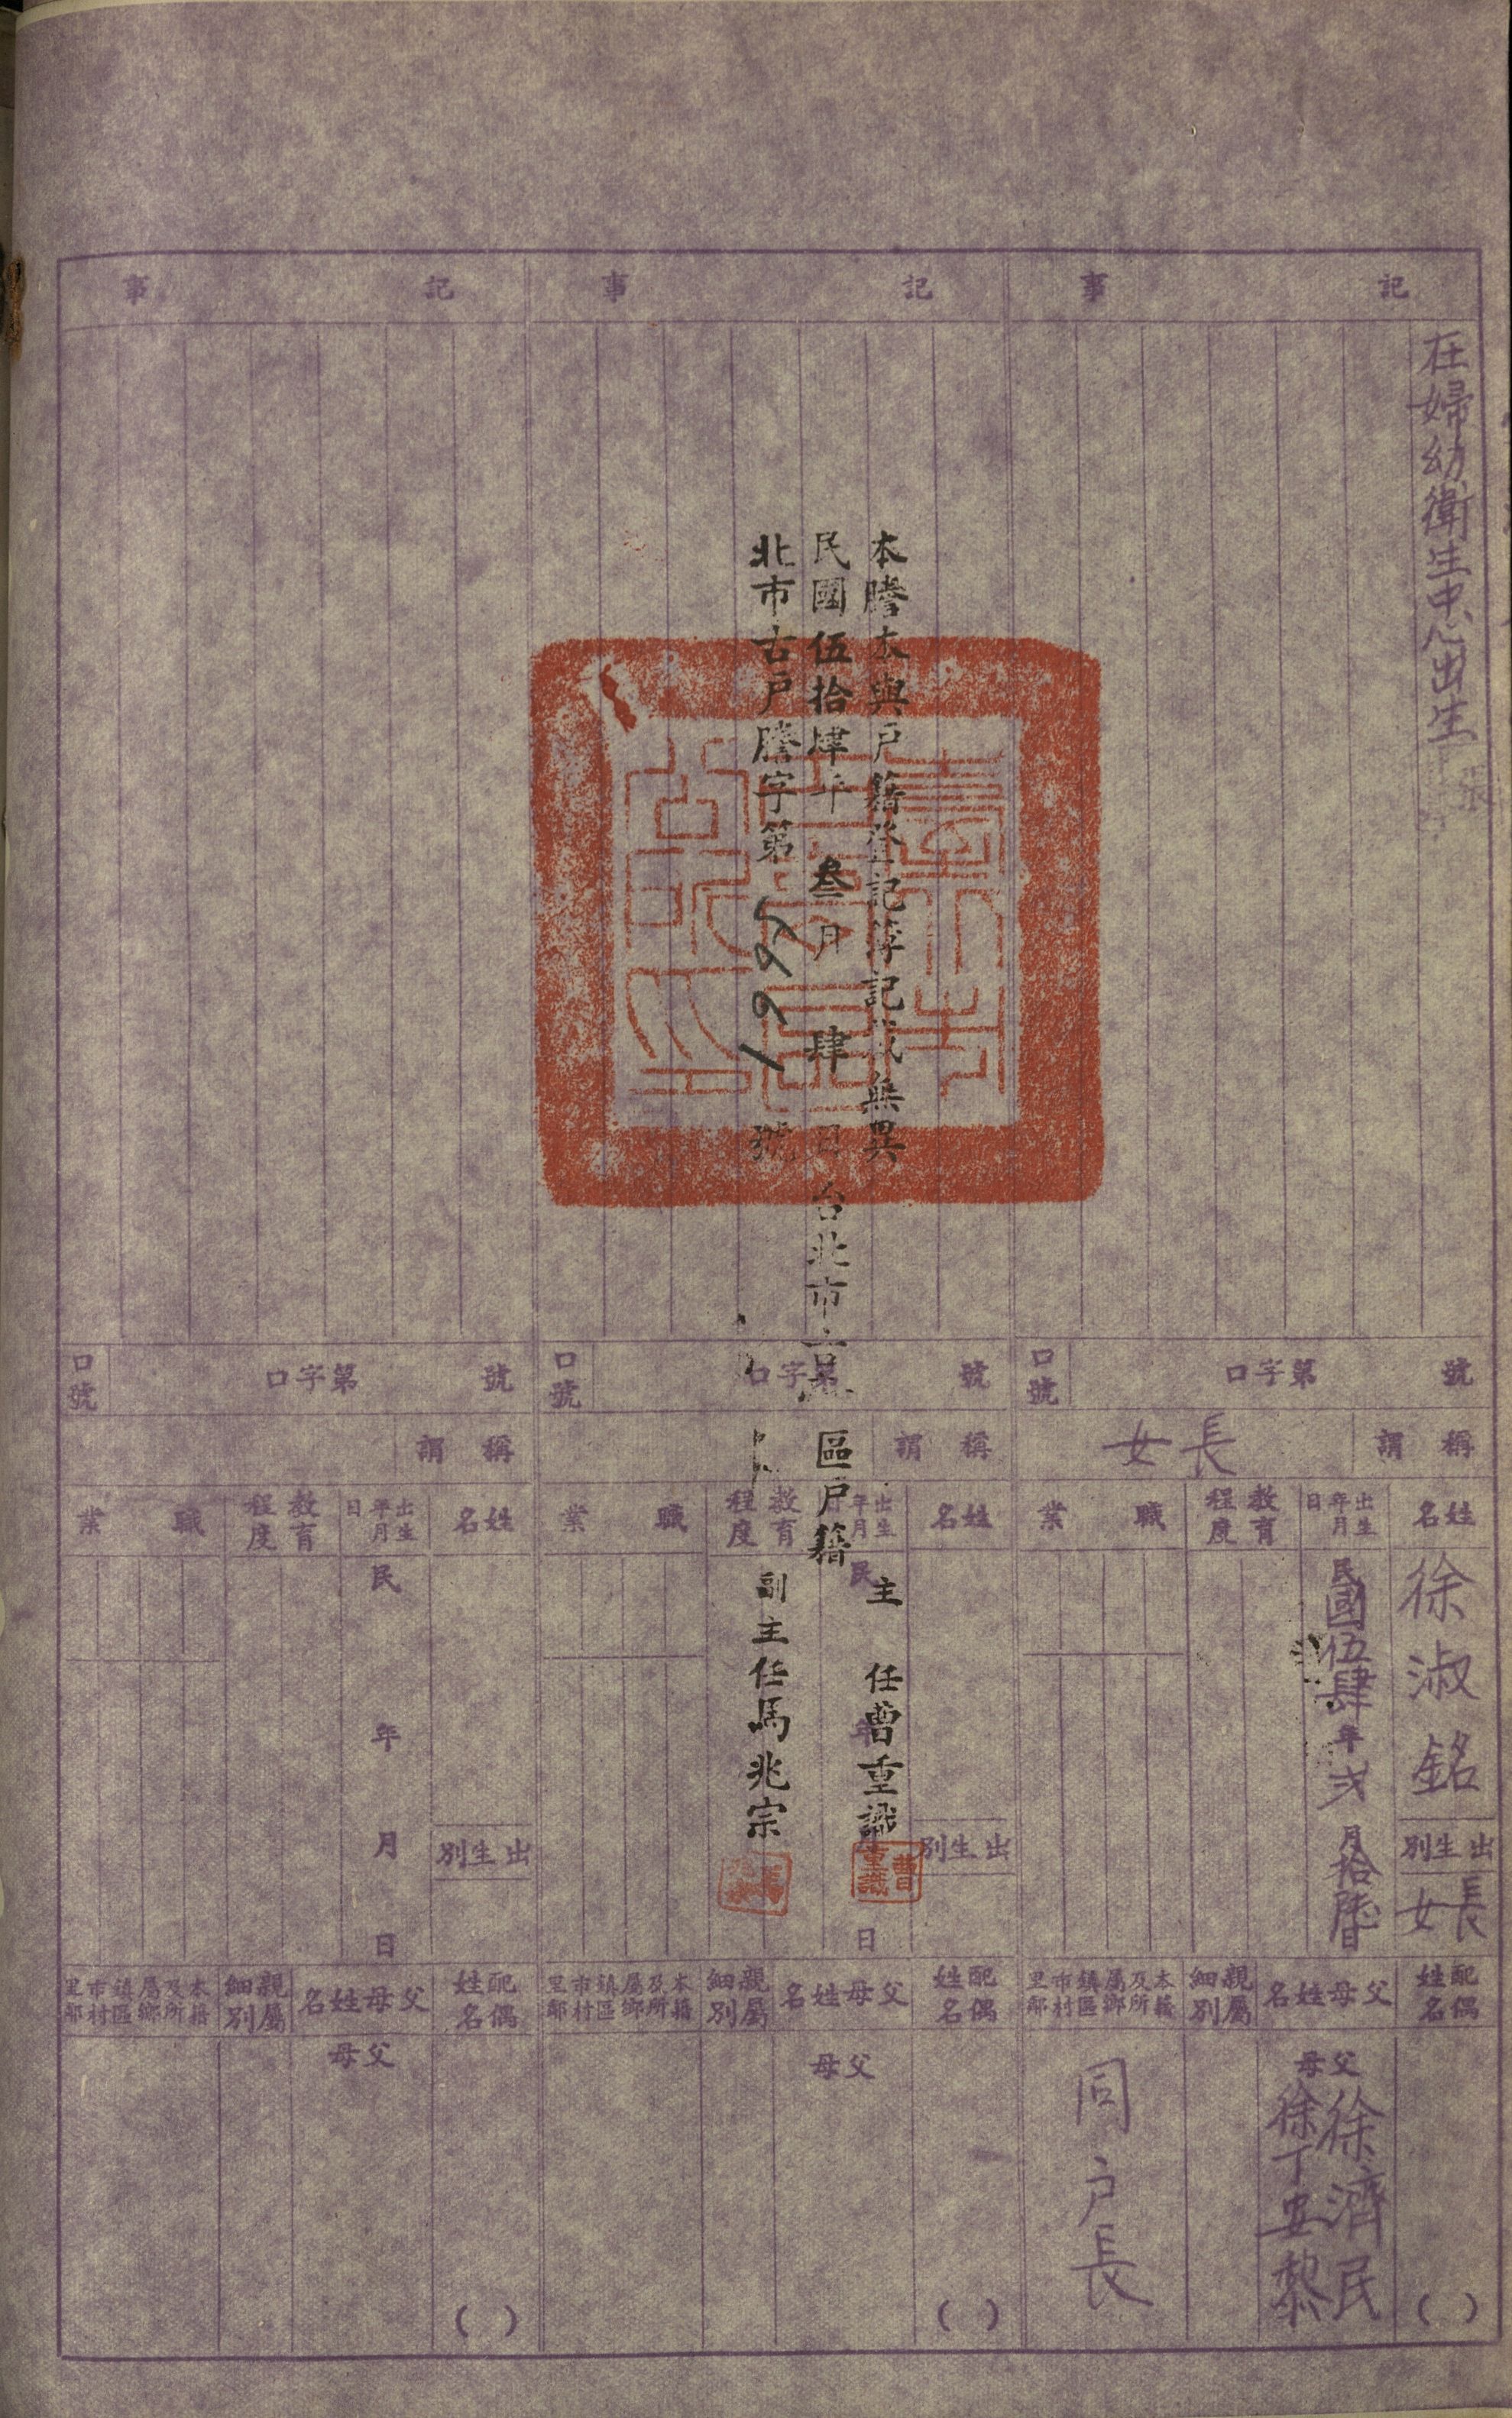 記事
在婦幼衛生中心出生
張
號
口字第
口號
稱謂
長女
姓名
徐淑銘
出生別
長女
出生年月日
民國伍肆年弍月拾陸日
教育程度
職業
配偶姓名
( )
父母姓名
父母
徐濟民
徐丁安黎
親屬細別
本籍及所屬鄉鎮區市村里鄰
同戶長
記事
本謄本與戶籍登記簿記載無異
民國伍拾肆年叁月肆日
台北市古亭區戶籍
主任曹重識
副主任馬兆宗
北市古戶謄字第
號
曹重識
號
口字第
口號
稱謂
姓名
出生別
出生年月日
民年月日
教育程度
職業
配偶姓名
( )
父母姓名
父母
親屬細別
本籍及所屬鄉鎮區市村里鄰
記事
號
口字第
口號
稱謂
姓名
出生別
出生年月日
民年月日
教育程度
職業
配偶姓名
( )
父母姓名
父母
親屬細別
本籍及所屬鄉鎮區市村里鄰